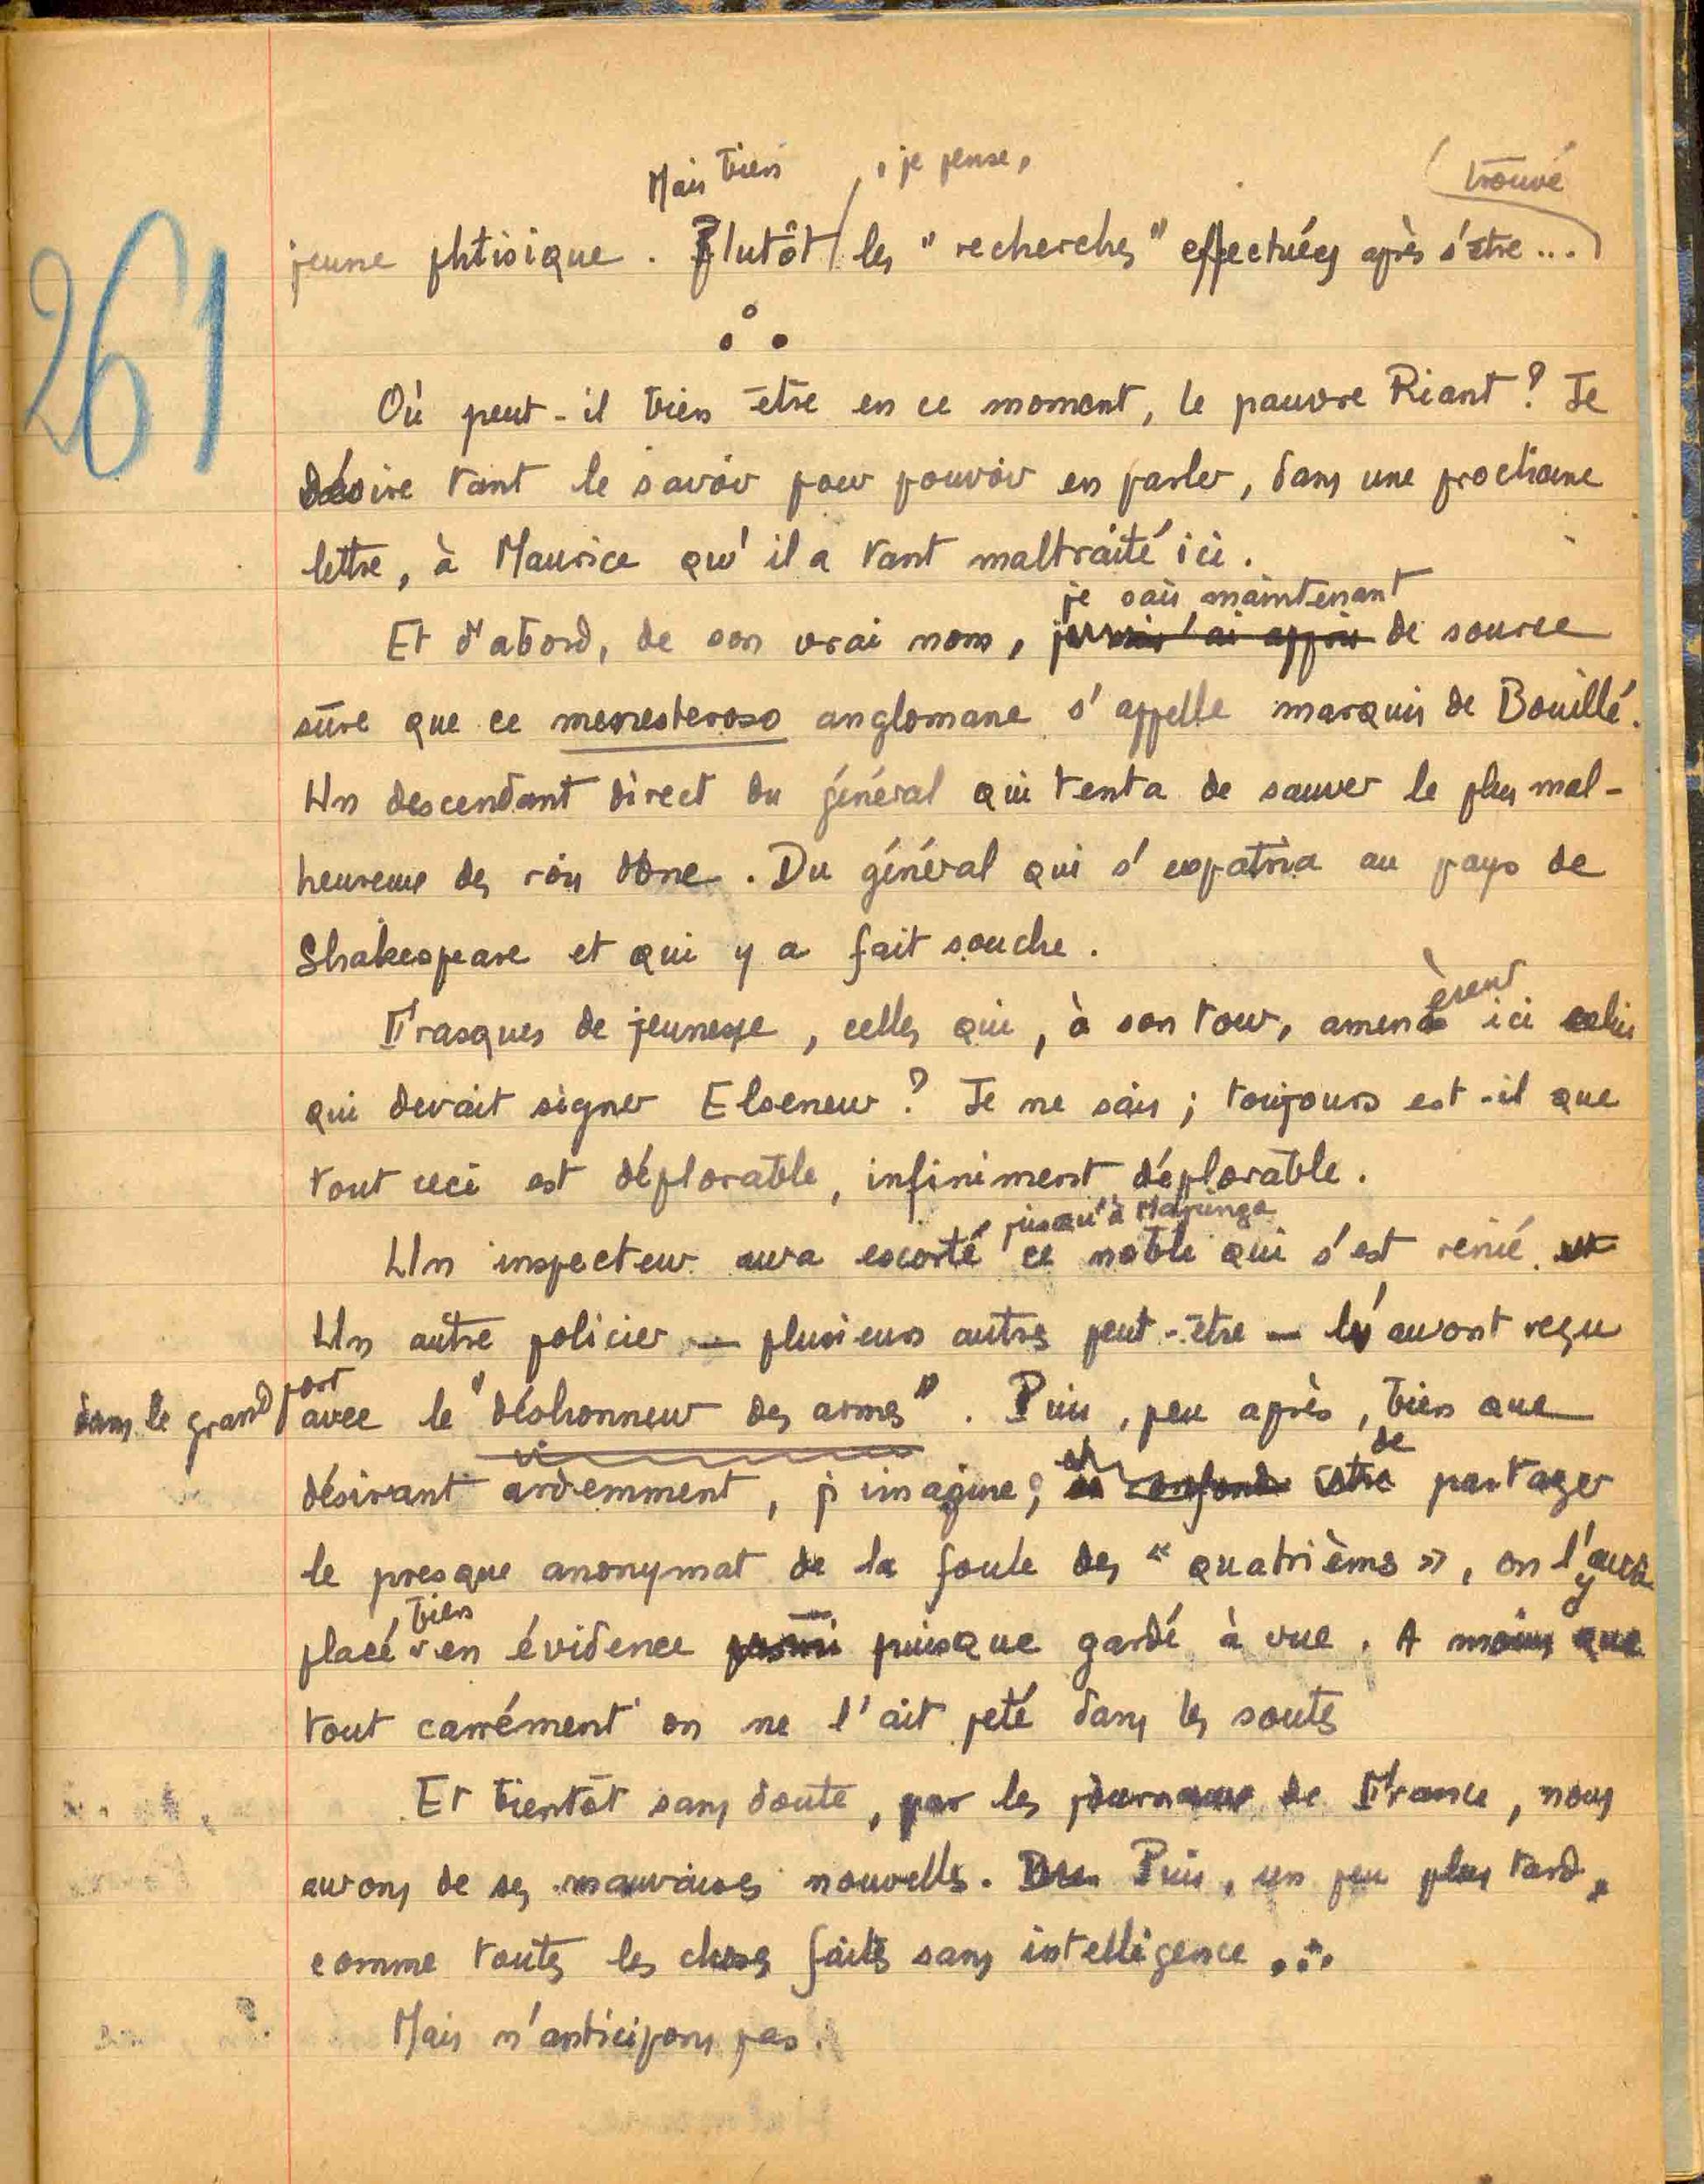 261
Mais bien , je pense, trouvé
jeune phtisique. Plutôt les "recherches" effectuées après s'être...
Où peut-il bien être en ce moment, le pauvre Riant? Je
désire tant le savoir pour pouvoir en parler, dans une prochaine
lettre, à Maurice qu'il a tant maltraité ici.
je sais maintenant
Et d'abord, de son vrai nom, de source
sûre que ce menesteroso anglomane s'appelle marquis de Bouillé.
Un descendant direct du général qui tenta de sauver le plus mal-
heureux des rois donc. Du général qui s'expatria au pays de
Shakespeare et qui y a fait souche.
èrent
Frasques de jeunesse, celles qui, à son tour, amen ici celui
qui devait signer Elseneur? Je ne sais; toujours est-il que
tout ceci est déplorable, infiniment déplorable.
jusqu'à Majunga
Un inspecteur aura escorté ce noble qui s'est renié.
Un autre policier — plusieurs autres peut-être — l'auront reçu
dans le grand port avec le "déshonneur des armes". Puis, peu après, bien que
de
désirant ardemment, j'imagine, partager
le presque anonymat de la foule des "quatrièmes", on l'y aura
bien
placé en évidence puisque gardé à vue. A moins que
tout carrément on ne l'ait jeté dans les soutes
Et bientôt sans doute, par les journaux de France, nous
aurons de ses mauvaises nouvelles. Puis, un peu plus tard,
comme toutes les choses faites sans intelligence...
Mais n'anticipons pas.